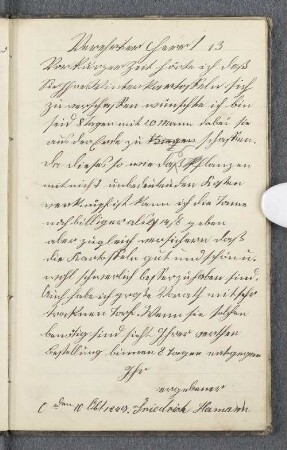 Verehrter Herr! 13
Vor kurzer Zeit hörte ich daß
Sie sich Winterkartoffeln
zu verschaffen wünschten ich bin
seit 8 Tagen mit 20 Mann dabei sie
aus der Erde zu schaffen.
Da dieses so wie daß Pflanzen
mit nicht unbedeutenden Kosten
verknüpft kann ich die Tonne
nicht billiger als geben
aber zugleich versichern daß
die Kartoffeln gut und schön u.
wohl schwerlich besser zu haben sind.
Auch habe ich große Vorrath
trocknen Torf. Wenn sie solchen
benöthigt sind sieht Ihrer werthen
Bestellung binnen 8 Tagen entgegen
Ihr
ergebener
C den 10 Okt 1849. Friedrich Hamann